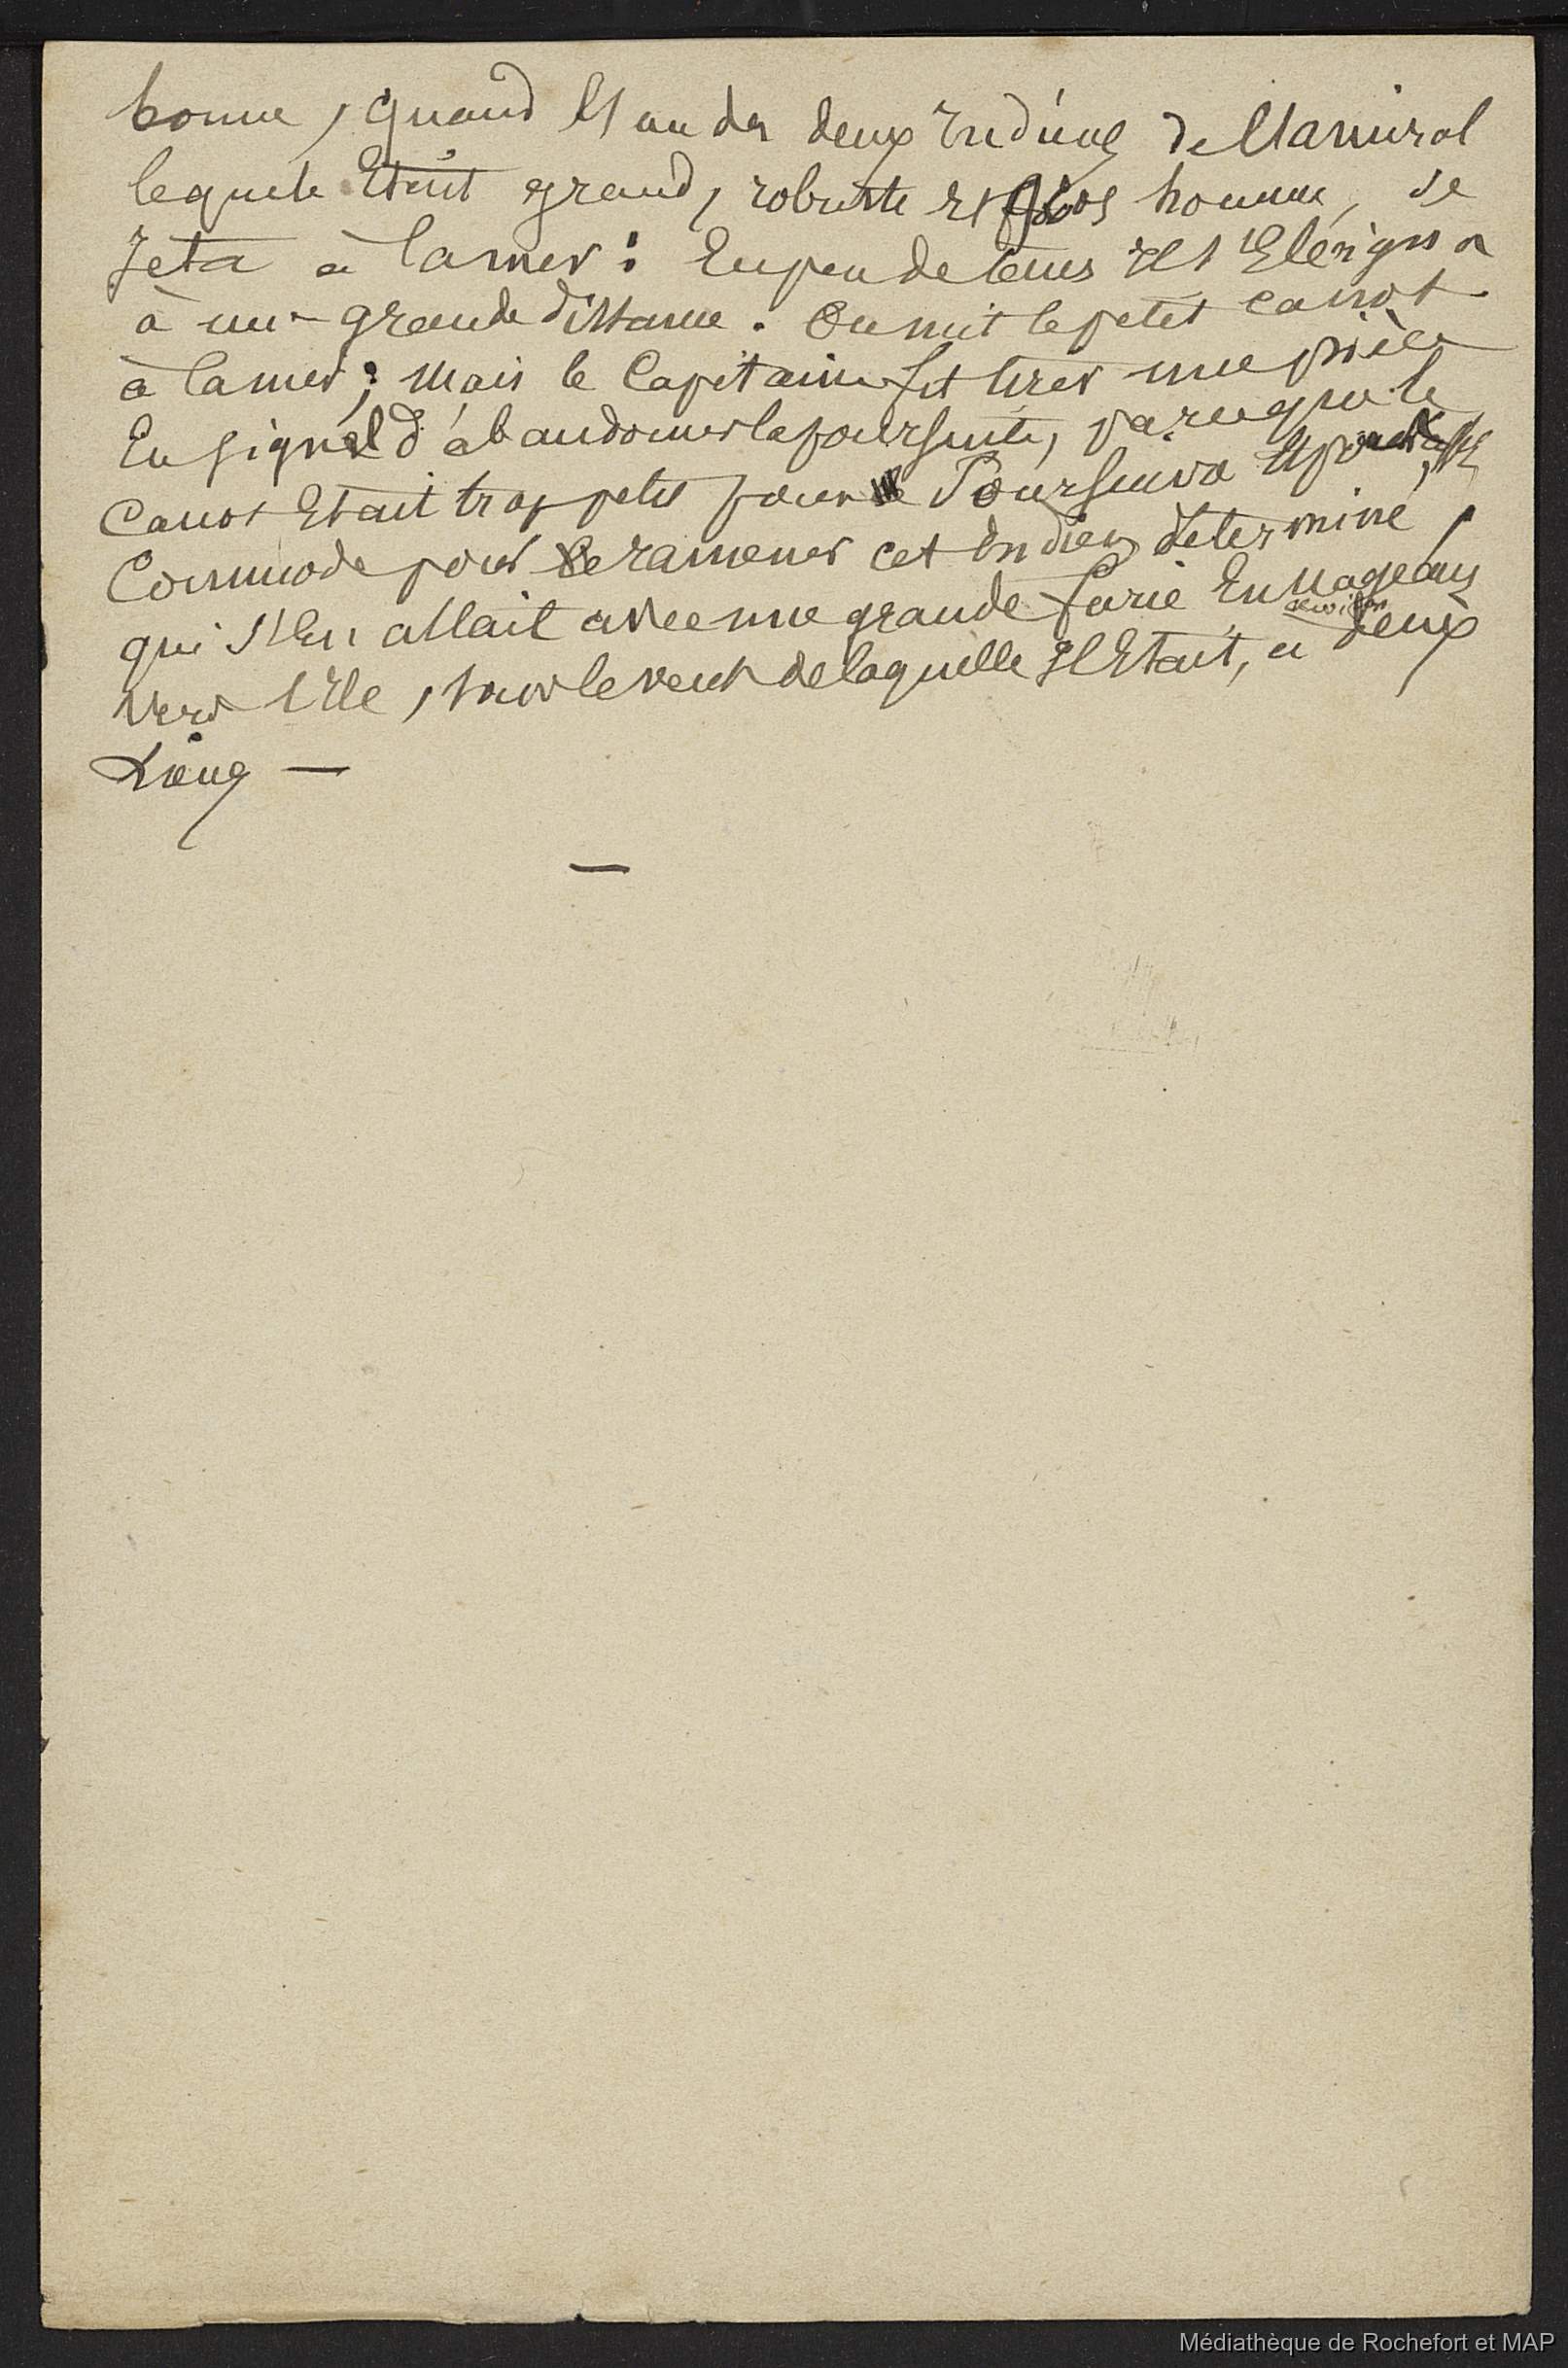 bonne, quand l'un des deux Indiens de l'Amiral
lequel Etait grand, robuste et gros homme, se
Jeta à la mer : En peu de tems Il s'Eloigna
à une grande distance. On mit le petit canot
à la mer ; mais le Capitaine fit tirer une pièce
En signal d'abandonner la poursuite, parce que le
Canot Etait trop petit pour le Poursuivre
Commode pour ramener cet Indien determiné,
qui s'En allait avec une grande furie En nageant
vers l'Ile, sous le vent de laquelle Il Etait, a environ deux
Lieues —
—
Médiathèque de Rochefort et MAP